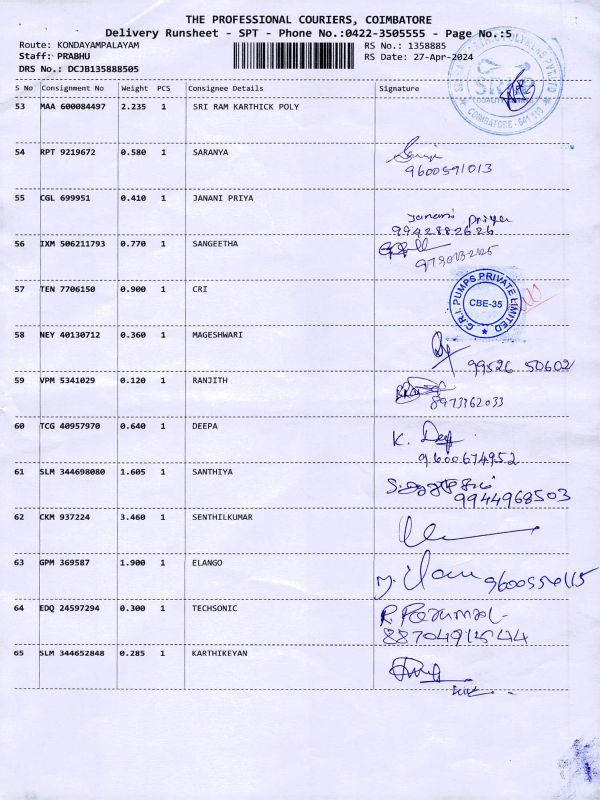 THE PROFESSIONAL COURIERS, COIMBATORE
Delivery Runsheet - SPT - Phone No.:0422-3505555 - Page No.:5
Route: KONDAYAMPALAYAM RS No.: 1358885
Staff: PRABHU RS Date: 27-Apr-2024
DRS No.: DCJB135888505
S No Consignment No Weight PCS Consignee Details Signature
53 MAA 600084497 2.235 1 SRI RAM KARTHICK POLY
COIMBATORE - 641 110
54 RPT 9219672 0.580 1 SARANYA
9600591013
55 CGL 699951 0.410 1 JANANI PRIYA
Janani Priya
9942882626
56 IXM 506211793 0.770 1 SANGEETHA
57 TEN 7706150 0.900 1 CRI
C.R.I. PUMPS PRIVATE LIMITED
CBE-35
58 NEY 40130712 0.360 1 MAGESHWARI
99526 50602
59 VPM 5341029 0.120 1 RANJITH
8973362033
60 TCG 40957970 0.640 1 DEEPA
K. Deep
9600674952
61 SLM 344698080 1.605 1 SANTHIYA
9944968503
62 CKM 937224 3.460 1 SENTHILKUMAR
63 GPM 369587 1.900 1 ELANGO
64 EDQ 24597294 0.300 1 TECHSONIC
R. Perumal
65 SLM 344652848 0.285 1 KARTHIKEYAN